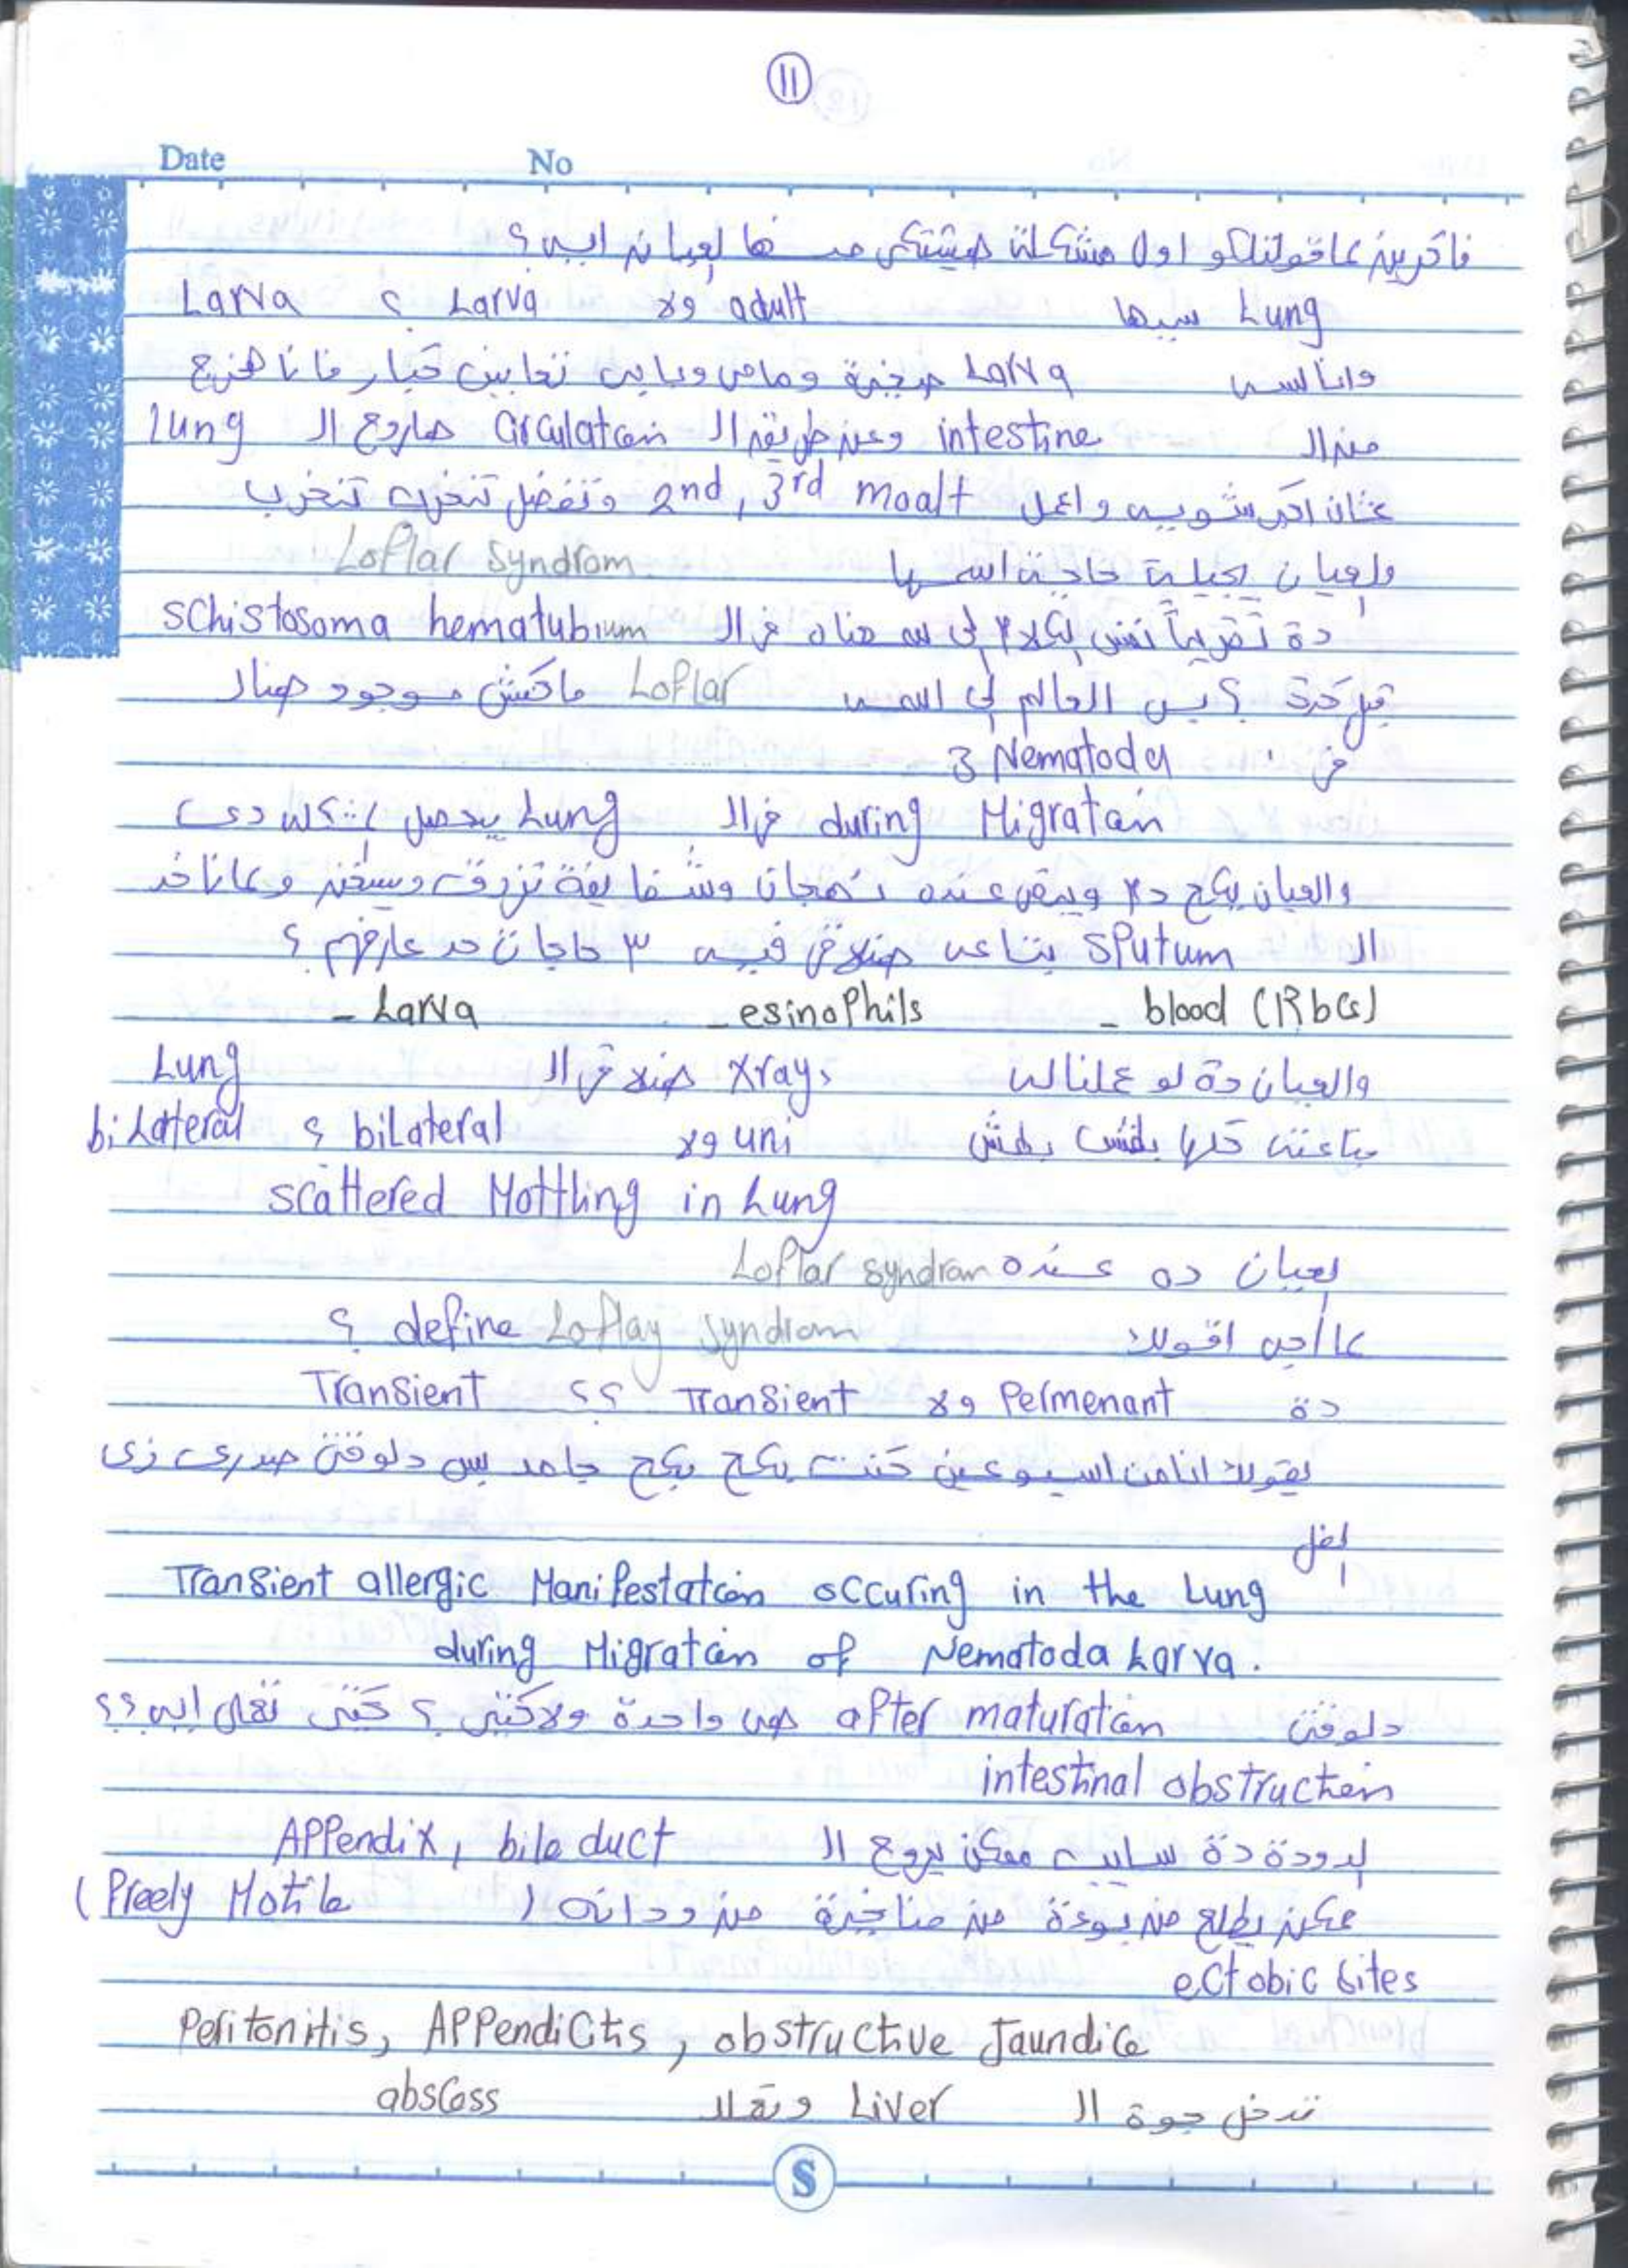 11
Date No
فاكرين عاقولتلكو اول مشكلة هيشتكى منها لعيان ايه ؟
Lung سببها adult ولا Larva ؟ Larva
وانا لسه Larva صغيرة ومامى وبابى تعابين كبار فانا هخرج
من ال intestine وعن طريق ال Circulation هاروح ال Lung
عشان اكبر شويه واعمل 2nd, 3rd moalt وتفضل تخرب تخرب
ولعيان يجيلة حاجة اسمها Loflar Syndrom.
دة تقريباً نفس الكلام لى هناك فى ال Schistosoma hematubium
قبل كدة ؟ بس العالم لى اسمه Loflar ماكنش موجود هناك
فى 3 Nematoda
during Migration فى ال Lung يحصل المشكله دى
والعيان يكح دم ويبقى عنده نهجان وشفايفة تزرق ويسخن وعاناخد
ال Sputum بتاعه هنلاقى فيه ٣ حاجات حد عارفهم ؟
- blood (Rbcs) - esinophils - Larva
والعيان دة لو عملناله Xrays هنلاقى ال Lung
بتاعته كلها بقش بقش uni ولا bilateral ؟ biLateral
scattered Mottling in Lung
لعيان ده عنده Loflar syndram
عااجى اقولك define Loflay Syndrom ؟
دة Permenant ولا Transient ؟؟ Transient
يقولك انا من اسبوعين كنت بكح بكح جامد بس دلوقتى صدرى زى
الفل
Transient allergic Manifestation occuring in the Lung
during Migration of Nematoda Larva.
دلوقتى after maturation هى واحدة ولا كتير ؟ كتير تعمل ايه ؟؟
intestinal obstruction
الدودة دة ممكن يروح ال Appendix, bile duct
ممكن يطلع من بوءة من مناخيرة من ودانه ( Freely Motile )
ectobic sites
Peritonitis, Appendicitis, obstructive Jaundice
تدخل جوة ال Liver وتعمل abscess
S